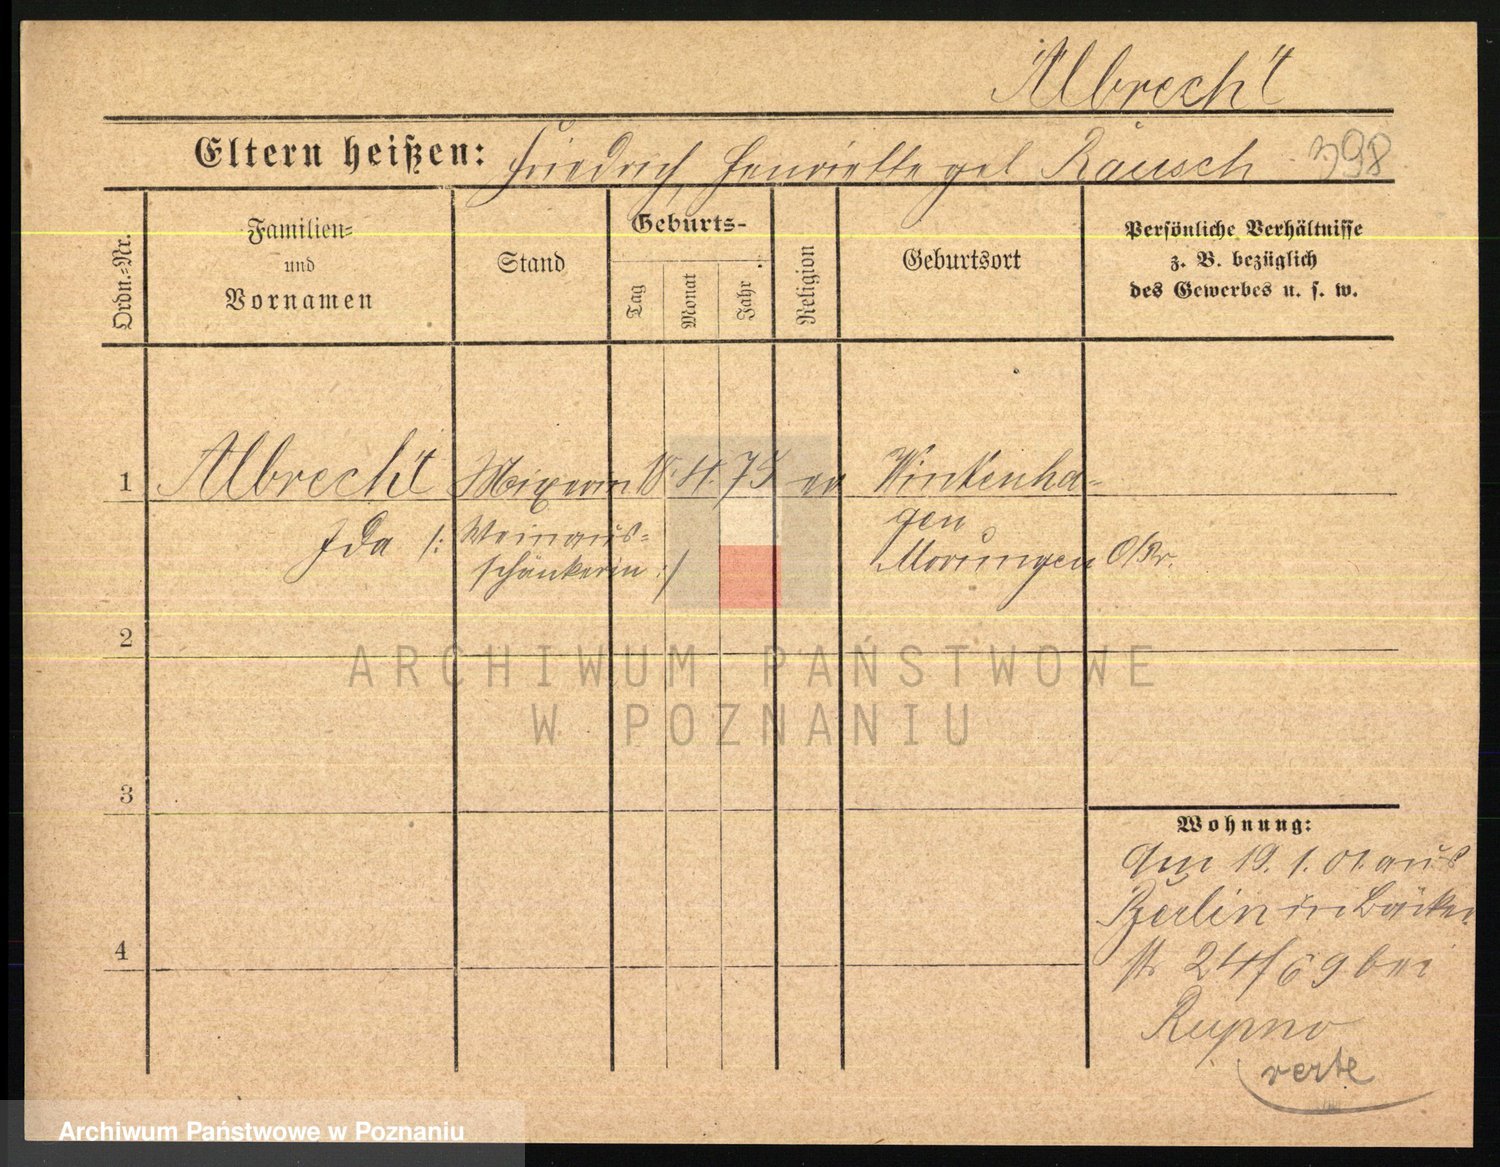 Albrecht
Eltern heißen: Friedrich, Henriette geb Rausch 398
Ordn.-Nr.
Familien-
und
Vornamen
Stand
Geburts-
Tag
Monat
Jahr
Religion
Geburtsort
Persönliche Verhältnisse
z. B. bezüglich
des Gewerbes u. s. w.
1 Albrecht Mixerin 18. 4. 75 ev Winkenha-
gen
Ida /: Weinaus-
schänkerin :/ Morungen O/Pr.
2
3
4
Wohnung:
Am 19. 1. 01. aus
Berlin in Bäcker
str 24/69 bei
verte
ARCHIWUM PAŃSTWOWE
W POZNANIU
Archiwum Państwowe w Poznaniu